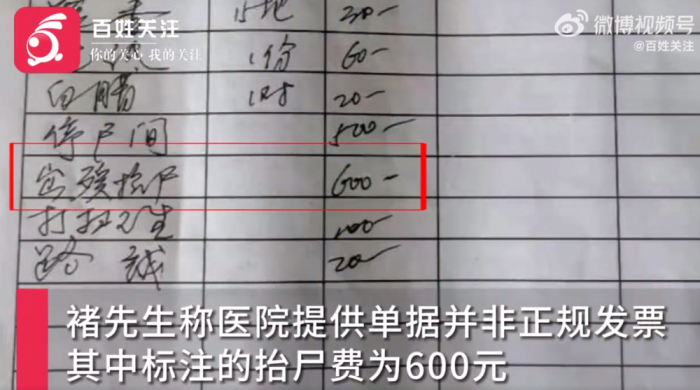 百姓关注
你的关心 我的关注
微博视频号
@百姓关注
20-
1份 60-
白腊 1对 20-
停尸间 500-
穿殓抬尸 600-
打扫卫生 100-
20-
褚先生称医院提供单据并非正规发票
其中标注的抬尸费为600元